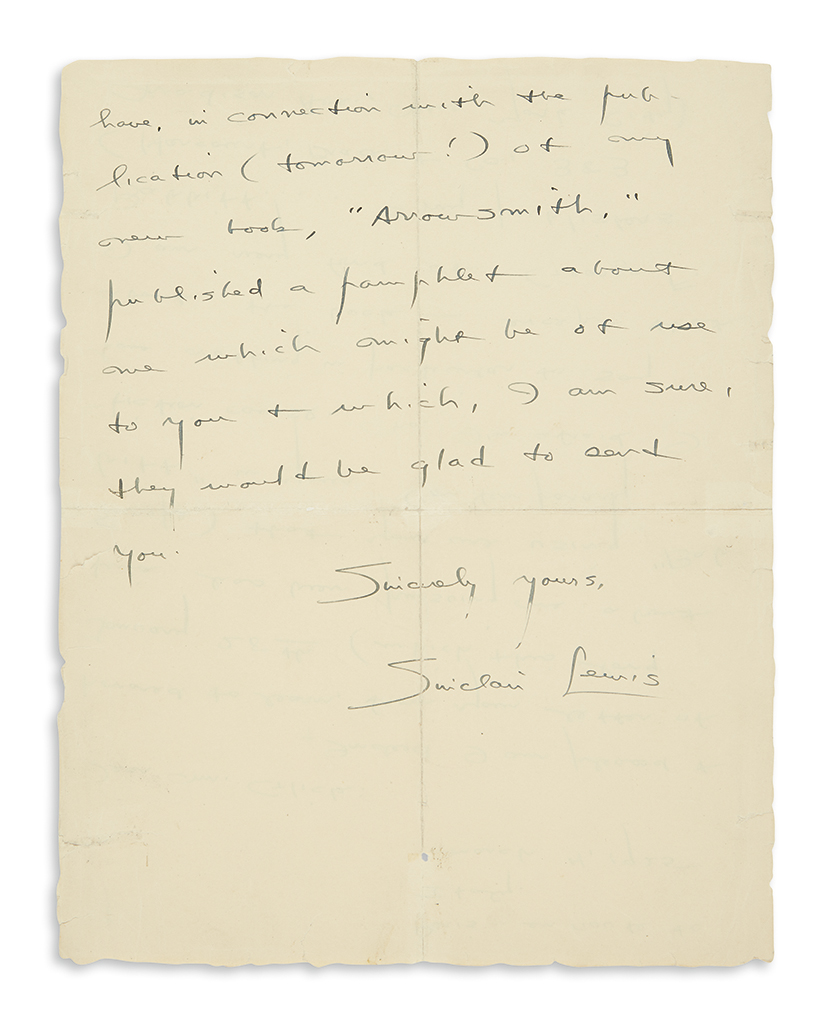 have, in connection with the pub-
lication (tomorrow!) of my
new book, "Arrowsmith,"
published a pamphlet about
me which might be of use
to you + which, I am sure,
they would be glad to send
you.
Sincerely yours,
Sinclair Lewis